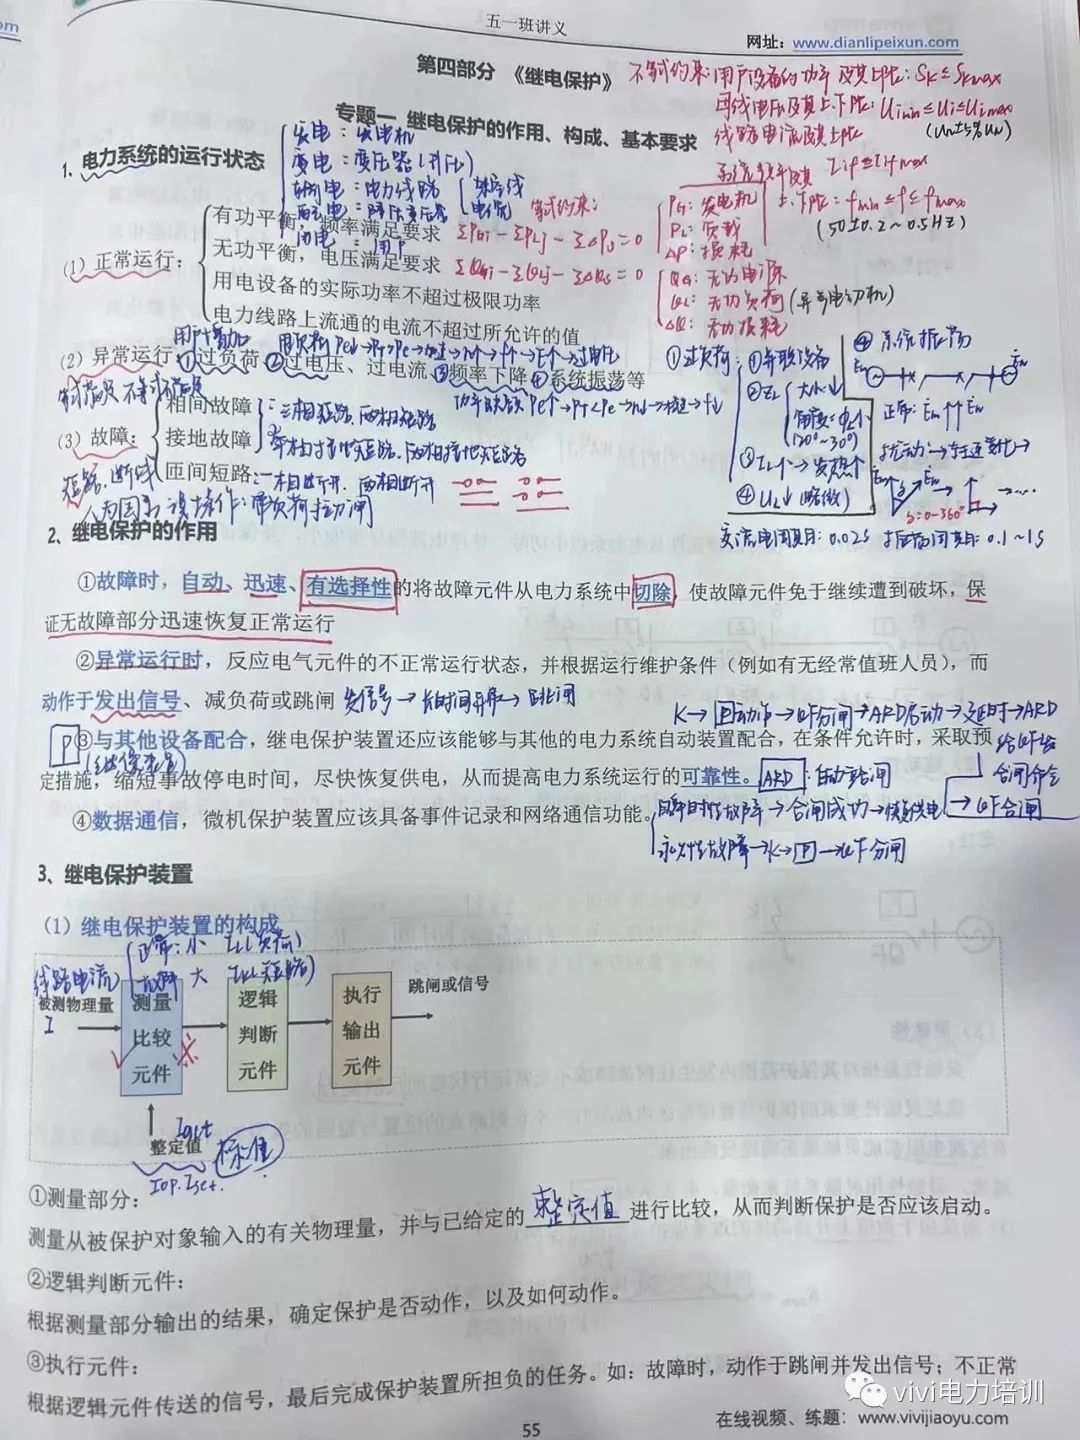 om
五一班讲义
网址：www.dianlipeixun.com
第四部分 《继电保护》
不等式约束：用户设备的功率及其上限：Sk≤Skmax
母线电压及其上、下限：Uimin≤Ui≤Uimax
(Un±5%Un)
专题一 继电保护的作用、构成、基本要求
线路电流及其上限
Iij≤Iijmax
系统频率及其
上、下限：fmin≤f≤fmax
(50±0.2~0.5HZ)
1、电力系统的运行状态
发电：发电机
变电：变压器(升压)
输电：电力线路
架空线
电缆
配电：降压变压器
用电：用户
等式约束：
ΣPGi－ΣPLj－ΣΔPs=0
ΣQGi－ΣQLj－ΣΔQs=0
PG：发电机
PL：负载
ΔP：损耗
QG：无功电源
QL：无功负荷(异步电动机)
ΔQ：无功损耗
（1）正常运行：
有功平衡，频率满足要求
无功平衡，电压满足要求
用电设备的实际功率不超过极限功率
电力线路上流通的电流不超过所允许的值
用户增加
（2）异常运行：①过负荷 ②过电压、过电流 ③频率下降 ④系统振荡等
①过负荷：①并联设备
②ZL 大小↓
角度：φL小
(20°~30°)
③IL↑→发热↑
④UL↓(略微)
④系统振荡
正常：
δ=0~360°
交流电周期：0.02s 振荡周期：0.1~1s
（3）故障：
相间故障
接地故障
匝间短路
：三相短路、两相短路
单相接地短路、两相接地短路
短路、断线
：一相断开、两相断开
人为因素：误操作：带负荷拉刀闸
2、继电保护的作用
①故障时，自动、迅速、有选择性的将故障元件从电力系统中切除，使故障元件免于继续遭到破坏，保
证无故障部分迅速恢复正常运行
②异常运行时，反应电气元件的不正常运行状态，并根据运行维护条件（例如有无经常值班人员），而
动作于发出信号、减负荷或跳闸
发信号→长时间异常→跳闸
K→P动作→QF分闸→ARD启动→延时→ARD
给QF合
合闸命令
→QF合闸
P
(继保装置)
③与其他设备配合，继电保护装置还应该能够与其他的电力系统自动装置配合，在条件允许时，采取预
定措施，缩短事故停电时间，尽快恢复供电，从而提高电力系统运行的可靠性。
ARD：自动重合闸
④数据通信，微机保护装置应该具备事件记录和网络通信功能。
瞬时性故障→合闸成功→恢复供电
永久性故障→K→P→QF分闸
3、继电保护装置
（1）继电保护装置的构成
线路电流
正常：小 IL(负荷)
故障 大 IK(短路)
被测物理量
I
测量
比较
元件
逻辑
判断
元件
执行
输出
元件
跳闸或信号
Iset
整定值
标准
Iop.Iset.
①测量部分：
测量从被保护对象输入的有关物理量，并与已给定的整定值进行比较，从而判断保护是否应该启动。
②逻辑判断元件：
根据测量部分输出的结果，确定保护是否动作，以及如何动作。
③执行元件：
根据逻辑元件传送的信号，最后完成保护装置所担负的任务。如：故障时，动作于跳闸并发出信号；不正常
vivi电力培训
在线视频、练题：www.vivijiaoyu.com
55